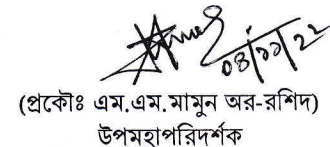 ০৪/১১/২২
(প্রকৌঃ এম.এম.মামুন অর-রশিদ)
উপমহাপরিদর্শক